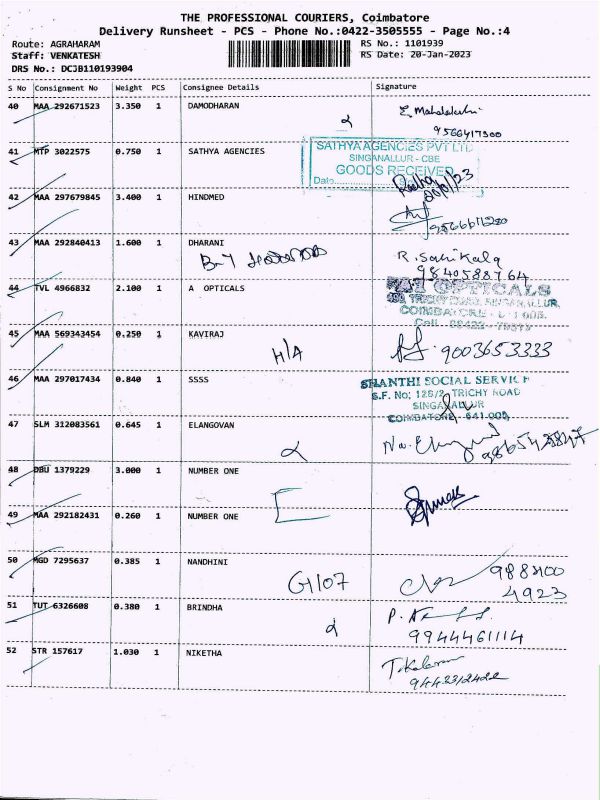 THE PROFESSIONAL COURIERS, Coimbatore
Delivery Runsheet - PCS - Phone No.:0422-3505555 - Page No.:4
Route: AGRAHARAM
RS No.: 1101939
Staff: VENKATESH
RS Date: 20-Jan-2023
DRS No.: DCJB110193904
S No Consignment No Weight PCS Consignee Details Signature
40 MAA 292671523 3.350 1 DAMODHARAN
9566417300
41 MTP 3022575 0.750 1 SATHYA AGENCIES
SATHYA AGENCIES PVT LTD
SINGANALLUR - CBE
GOODS RECEIVED
Date
Radha
20/1/23
42 MAA 297679845 3.400 1 HINDMED
43 MAA 292840413 1.600 1 DHARANI
R. Sasikala
9840588764
44 TVL 4966832 2.100 1 A OPTICALS
OPTICALS
45 MAA 569343454 0.250 1 KAVIRAJ
H/A
9003653333
46 MAA 297017434 0.840 1 SSSS
SHANTHI SOCIAL SERVICE
S.F. No; 126/2, TRICHY ROAD
SINGANALLUR
COIMBATORE - 641 005.
47 SLM 312083561 0.645 1 ELANGOVAN
48 DBU 1379229 3.000 1 NUMBER ONE
49 MAA 292182431 0.260 1 NUMBER ONE
50 MGD 7295637 0.385 1 NANDHINI
G1107
988400
4923
51 TUT 6326608 0.380 1 BRINDHA
9944461114
52 STR 157617 1.030 1 NIKETHA